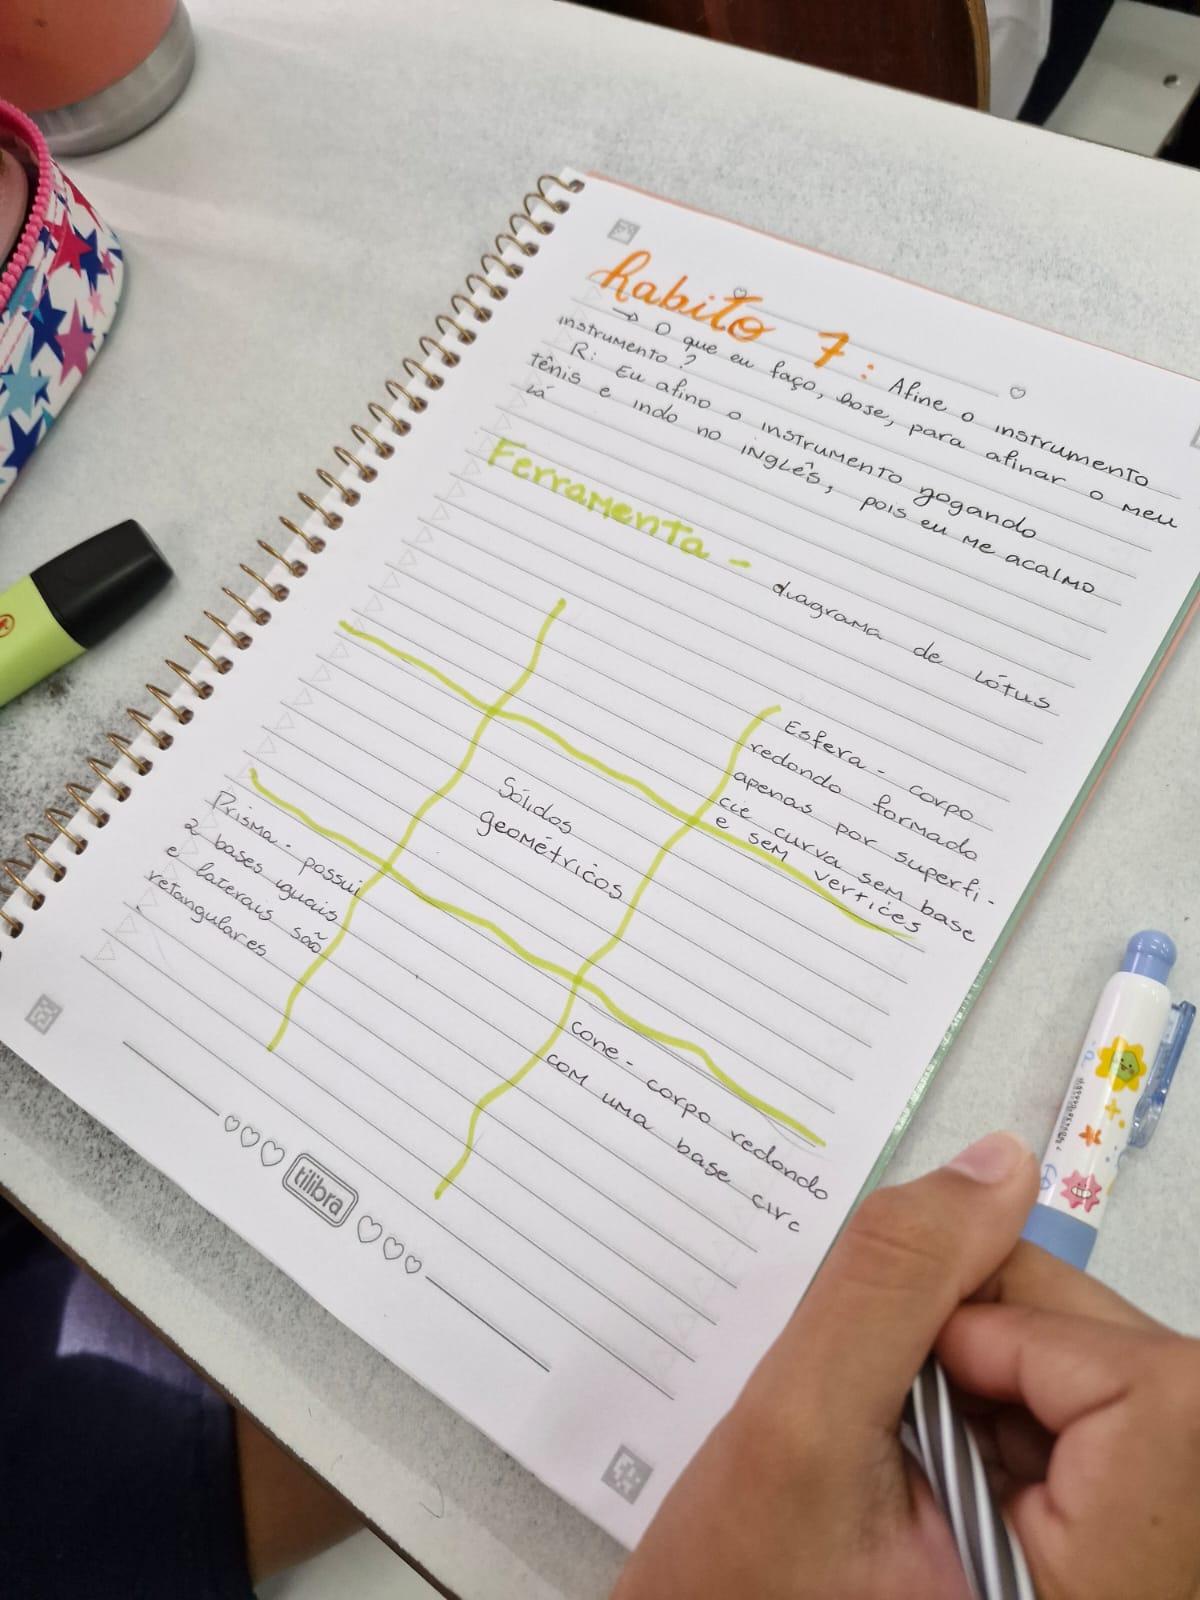 habito 7: Afine o instrumento
→ O que eu faço, hose, para afinar o meu
instrumento?
R: Eu afino o instrumento gogando
tênis e indo no inglês, pois eu me acalmo
Lá
Ferramenta - diagrama de Lótus
Esfera - corpo
redondo formado
apenas por superfi-
cie curva sem base
e sem vertices
Sólidos
geométricos
Prisma - possui
2 bases iguais
e laterais são
retangulares
cone - corpo redondo
com uma base circ
tilibra